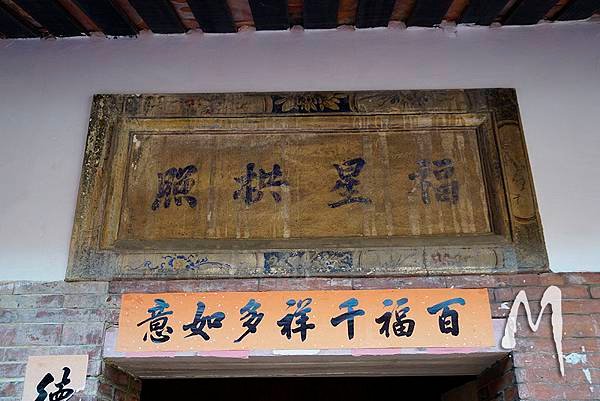 福星拱照
百福千祥多如意
德
M